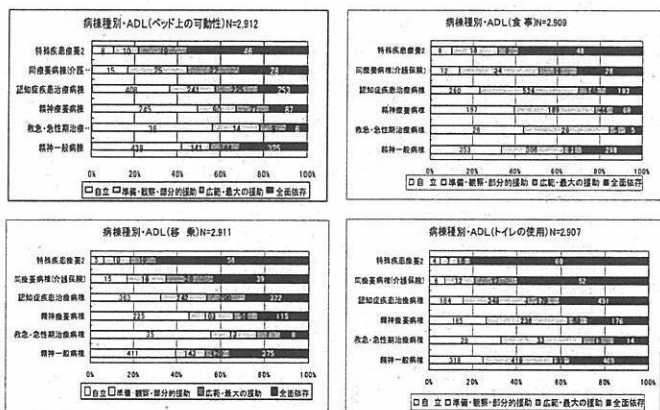 病棟種別・ADL(ベッド上の可動性)N=2,912
特殊疾患療養2 10 46
同療養病棟(介護‥ 15 25 28
認知症疾患治療病棟 408 241 225 253
精神療養病棟 245 87
救急・急性期治療‥ 36 14
精神一般病棟 439 141 325
0% 20% 40% 60% 80% 100%
□自立 □準備・観察・部分的援助 ■広範・最大の援助 ■全面依存
病棟種別・ADL(食事)N=2,909
特殊疾患療養2 18 48
同療養病棟(介護保険) 12 34 28
認知症疾患治療病棟 260 524 163
精神療養病棟 197 189 44 69
救急・急性期治療病棟 26 26 5
精神一般病棟 353 306 218
0% 20% 40% 60% 80% 100%
□自立 □準備・観察・部分的援助 ■広範・最大の援助 ■全面依存
病棟種別・ADL(移 乗)N=2,911
特殊疾患療養2 5 58
同療養病棟(介護保険) 15 16 39
認知症疾患治療病棟 363 242 322
精神療養病棟 225 103 115
救急・急性期治療病棟 35 8
精神一般病棟 411 142 375
0% 20% 40% 60% 80% 100%
□自立 □準備・観察・部分的援助 ■広範・最大の援助 ■全面依存
病棟種別・ADL(トイレの使用)N=2,907
特殊疾患療養2 4 7
同療養病棟(介護保険) 6 12 52
認知症疾患治療病棟 184 491
精神療養病棟 165 176
救急・急性期治療病棟 33 14
精神一般病棟 318 419
0% 20% 40% 60% 80% 100%
□自立 □準備・観察・部分的援助 ■広範・最大の援助 ■全面依存